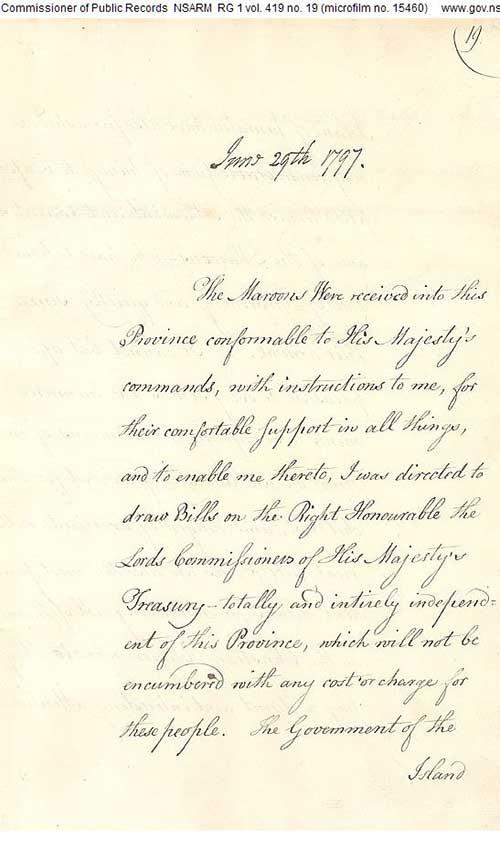 Commissioner of Public Records NSARM RG 1 vol. 419 no. 19 (microfilm no. 15460) www.gov.ns
19.
June 29th 1797.
The Maroons Were received into this
Province conformable to His Majesty's
commands, with instructions to me, for
their comfortable support in all things,
and to enable me thereto, I was directed to
draw Bills on the Right Honourable the
Lords Commissioners of His Majesty's
Treasury – totally and intirely independ=
ent of this Province, which will not be
encumbered with any cost or charge for
these people. The Government of the
Island